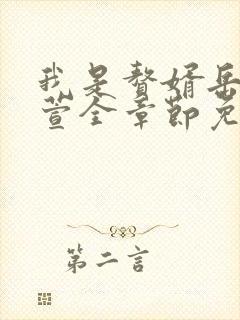 我是赘婿岳
萱全章节免
第二言